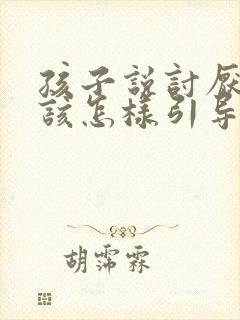 孩子說討厭
該怎樣引导
胡霈霖